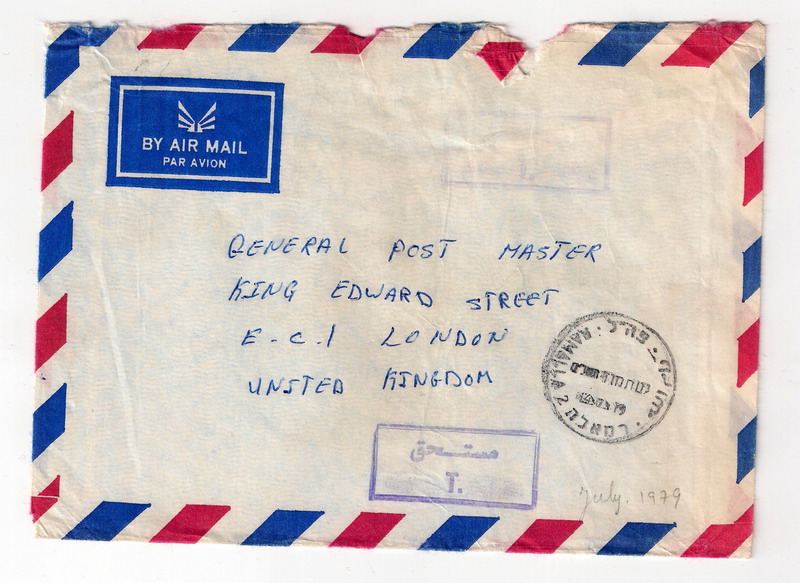 BY AIR MAIL
PAR AVION
GENERAL POST MASTER
KING EDWARD STREET
E.C.1 LONDON
UNITED KINGDOM
RAMALLA
مستحق
T.
July. 1979